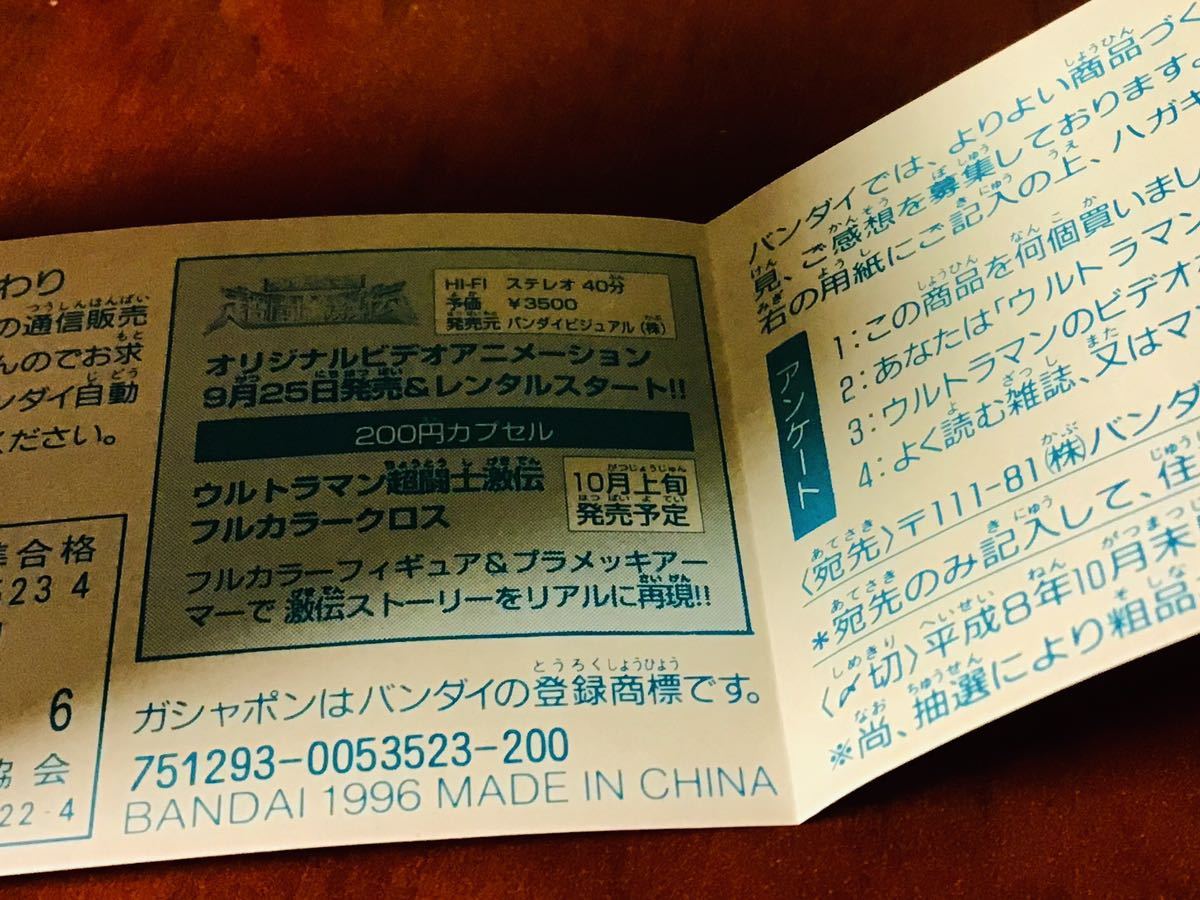 わり
の通信販売
んのでお求
ンダイ自動
ください。
合格
5234
6
協会
22-4
超闘士激伝
HI-FI ステレオ 40分
予価 ¥3500
発売元 バンダイビジュアル(株)
オリジナルビデオアニメーション
9月25日発売&レンタルスタート!!
200円カプセル
ウルトラマン超闘士激伝
フルカラークロス
10月上旬
発売予定
フルカラーフィギュア&プラメッキアー
マーで 激伝ストーリーをリアルに再現!!
ガシャポンはバンダイの登録商標です。
751293-0053523-200
BANDAI 1996 MADE IN CHINA
バンダイでは、よりよい商品づく
見、ご感想を募集しております。
右の用紙にご記入の上、ハガキ
アンケート
1:この商品を何個買いまし
2:あなたは「ウルトラマン
3:ウルトラマンのビデオア
4:よく読む雑誌、又はマ
〈宛先〉〒111-81(株)バンダ
*宛先のみ記入して、住
〈〆切〉平成8年10月末
※尚、抽選により粗品